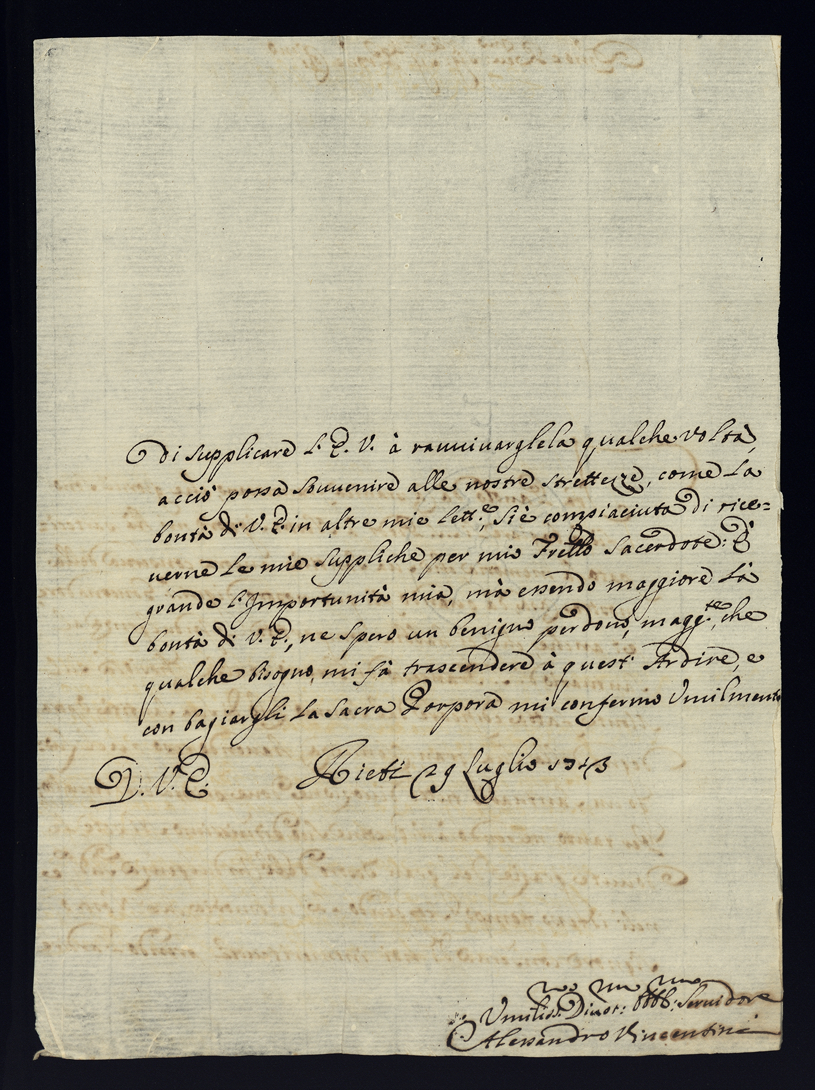 Di supplicare l'E. V. à ravvivarglela qualche volta,
acciò possa souvenire alle nostre strettezze, come la
bontà di V. E. in altre mie lett.e, si è compiaciuta di rice=
verne le mie suppliche per mio Frello Sacerdote: È
grande l'Importunità mia, mà essendo maggiore la
bontà di V. E., ne spero un benigno perdono, magg.te, che
qualche bisogno, mi fà trascendere à quest'Ardire, e
con bagiargli la Sacra Porpora mi confermo Umilmente
D. V. E. Rieti 29 Luglio 1743
Umilis: Divot: Obbb: Servidore
Alessandro Vincentini